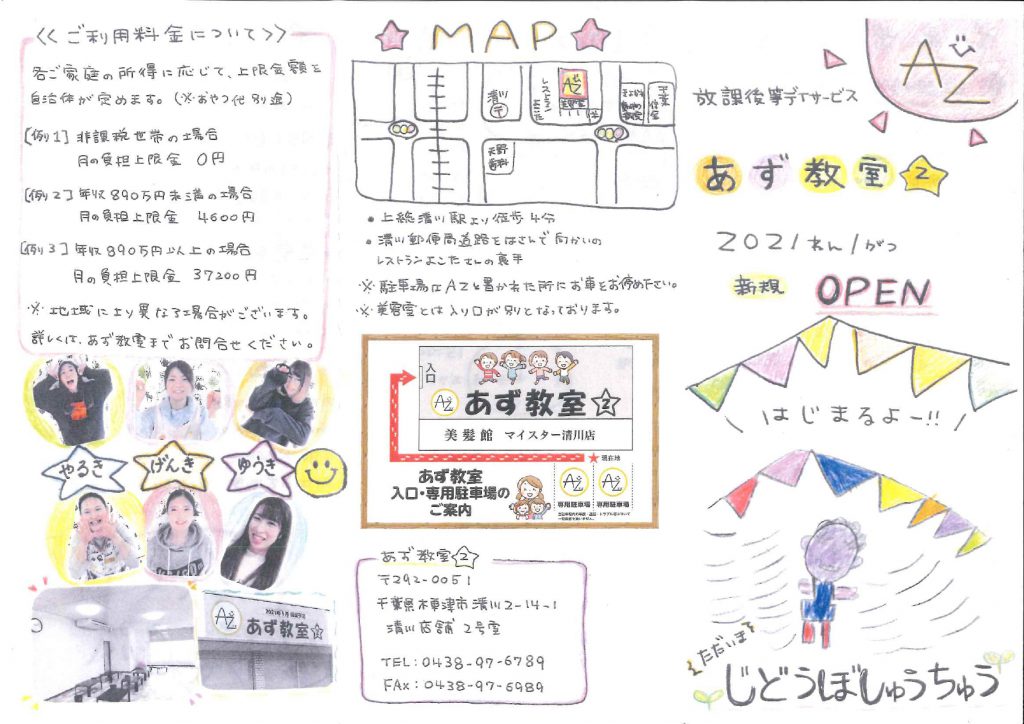 <<ご利用料金について>>
各ご家庭の所得に応じて、上限金額を
自治体が定めます。(※おやつ代 別途)
[例1] 非課税世帯の場合
月の負担上限金 0円
[例2] 年収890万円未満の場合
月の負担上限金 4600円
[例3] 年収890万円以上の場合
月の負担上限金 37200円
※地域により異なる場合がございます。
詳しくは、あず教室までお問合せください。
やるき
げんき
ゆうき
AZ
あず教室2
MAP
清川
〒
レストラン
よこた
AZ
美容室
天野
歯科
●上総清川駅より徒歩4分
●清川郵便局道路をはさんで向かいの
レストランよこたさんの裏手
※駐車場はAZと書かれた所にお車をお停め下さい。
※美容室とは入り口が別となっております。
入口
AZ あず教室2
美髪館 マイスター清川店
★現在地
あず教室
入口・専用駐車場の
ご案内
AZ
専用駐車場
AZ
専用駐車場
あず教室2
〒292-0051
千葉県木更津市清川2-14-1
清川店舗 2号室
TEL:0438-97-6789
FAX:0438-97-6989
AZ
放課後等デイサービス
あず教室2
2021ねん1がつ
新規 OPEN
はじまるよー!!
ただいま
じどうぼしゅうちゅう